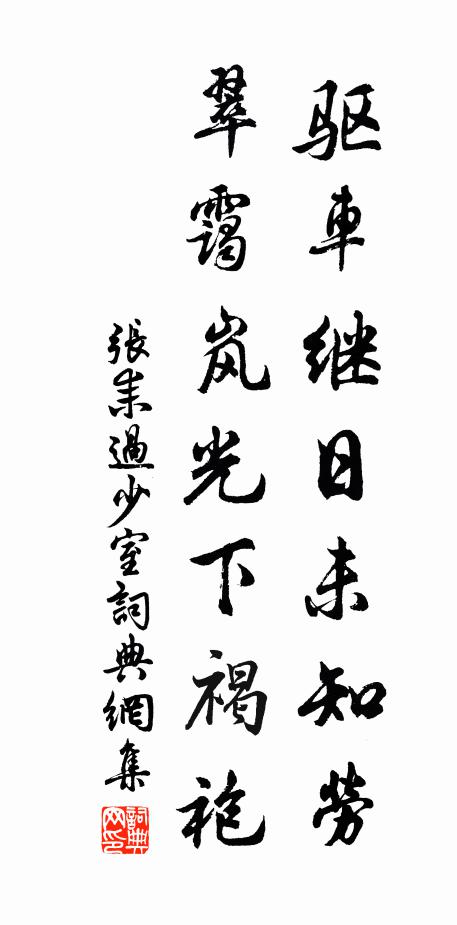 驱車继日未知勞
翠靄岚光下褐袍
張耒過少室詞典網集
詞典網印